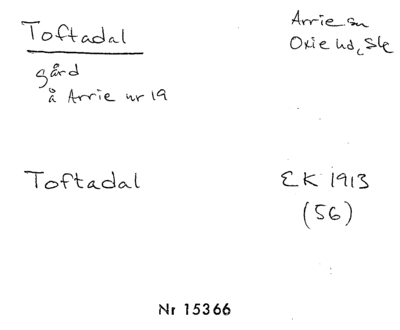 Toftadal
Arrie sn
Oxie hd, Ske
gård
å Arrie nr 19
Toftadal
EK 1913
(56)
Nr 15366